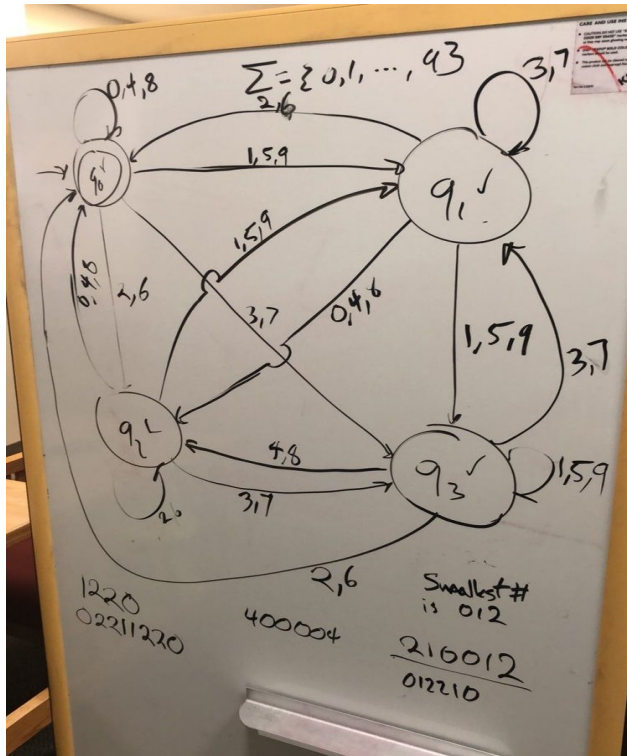 CARE AND USE INS
Σ = {0,1, ..., 9}
0,4,8
3,7
2,6
1,5,9
q0 ✓
q1 ✓
1,5,9
0,4,8
2,6
3,7
0,4,8
1,5,9
3,7
q2
4,8
q3 ✓
1,5,9
3,7
2,6
1220
02211220
400004
Smallest #
is 012
210012
012210